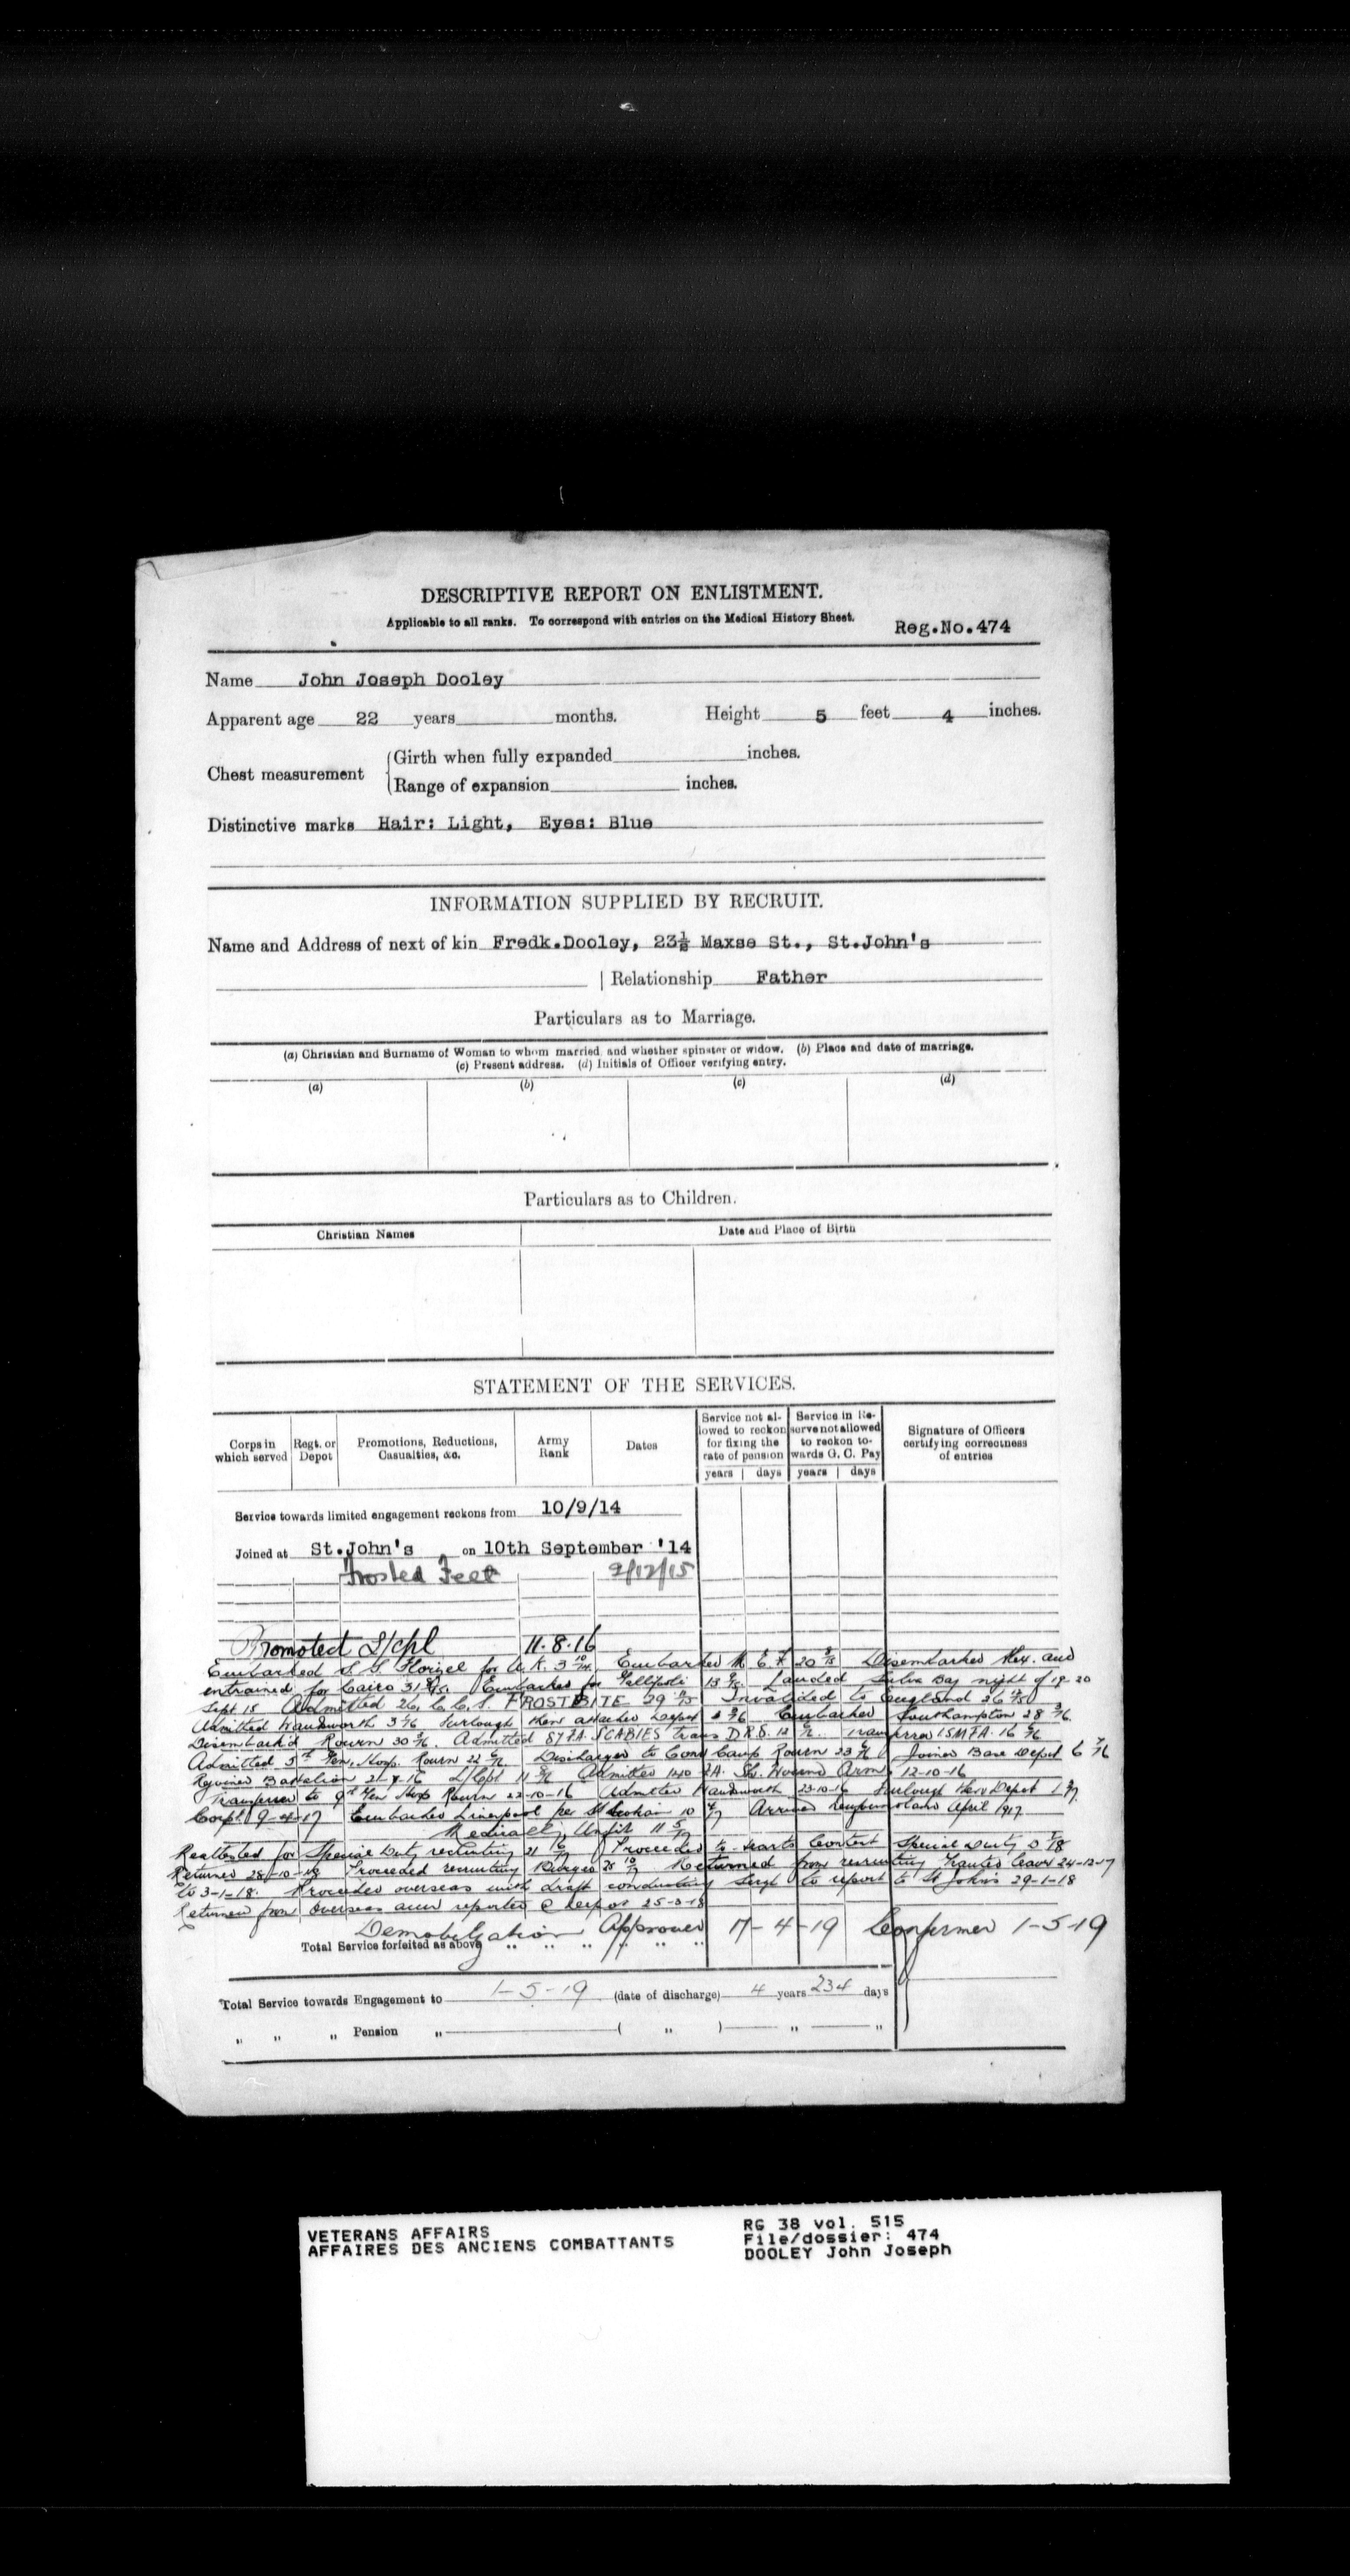 DESCRIPTIVE REPORT ON ENLISTMENT.
Applicable to all ranks. To correspond with entries on the Medical History Sheet.
Reg.No.474
Name John Joseph Dooley
Apparent age 22 years months. Height 5 feet 4 inches.
Chest measurement
Girth when fully expanded inches.
Range of expansion inches.
Distinctive marks Hair: Light, Eyes: Blue
INFORMATION SUPPLIED BY RECRUIT.
Name and Address of next of kin Fredk.Dooley, 23½ Maxse St., St.John's
Relationship Father
Particulars as to Marriage.
(a) Christian and Surname of Woman to whom married, and whether spinster or widow. (b) Place and date of marriage.
(c) Present address. (d) Initials of Officer verifying entry.
(a) (b) (c) (d)
Particulars as to Children.
Christian Names Date and Place of Birth
STATEMENT OF THE SERVICES.
Corps in which served
Regt. or Depot
Promotions, Reductions, Casualties, &c.
Army Rank
Dates
Service not allowed to reckon for fixing the rate of pension
Service in Reserve not allowed to reckon towards G. C. Pay
Signature of Officers certifying correctness of entries
years days years days
Service towards limited engagement reckons from 10/9/14
Joined at St.John's on 10th September '14
Frosted Feet 2/12/15
Promoted L/cpl 11.8.16
Embarked S.S. Florizel for U.K. 3 10/14. Embarked M.E.F. 20 8/15 Disembarked Alex. and
entrained for Cairo 31 8/15. Embarked for Gallipoli 13 9/15. Landed Suvla Bay night of 19-20
Sept 15 Admitted 26 C.C.S. FROSTBITE 29 11/15 Invalided to England
Admitted Wandsworth Furlough then attached Depot Embarked Southampton 28 3/16.
Disembark'd Rouen 30 3/16. Admitted 87 F.A. SCABIES trans D.R.S. 12
Admitted 5th Gen. Hosp. Rouen 22 Discharged to Conv Camp Rouen 23 Joined Base Depot 6 7/16
Rejoined Battalion 21-7-16 L/Cpl 11 8/16 Admitted 140 F.A. Sh. Wound Arm 12-10-16
Transferred to 9th Gen Hosp Rouen 22-10-16 Admitted Wandsworth 23-10-16 Furlough
Corpl. 9-4-17 Embarked Liverpool per 10 4/17 Arrived Newfoundland April 1917
Medically Unfit 11 5/17
Reattested for Special Duty recruiting 21 Proceeded to Hearts Content Special Duty
Returned 28-10-18 Proceeded recruiting Burgeo 28 10/17 Returned from recruiting Granted leave 24-12-17
to 3-1-18. Proceeded overseas with draft conducting Sergt to report to St Johns 29-1-18
Returned from overseas and reported @ Depot 25-3-18
Demobilization Approved 17-4-19 Confirmed 1-5-19
Total Service forfeited as above
Total Service towards Engagement to 1-5-19 (date of discharge) 4 years 234 days
" " " Pension " ( " ) " "
VETERANS AFFAIRS
AFFAIRES DES ANCIENS COMBATTANTS
RG 38 vol. 515
File/dossier: 474
DOOLEY John Joseph